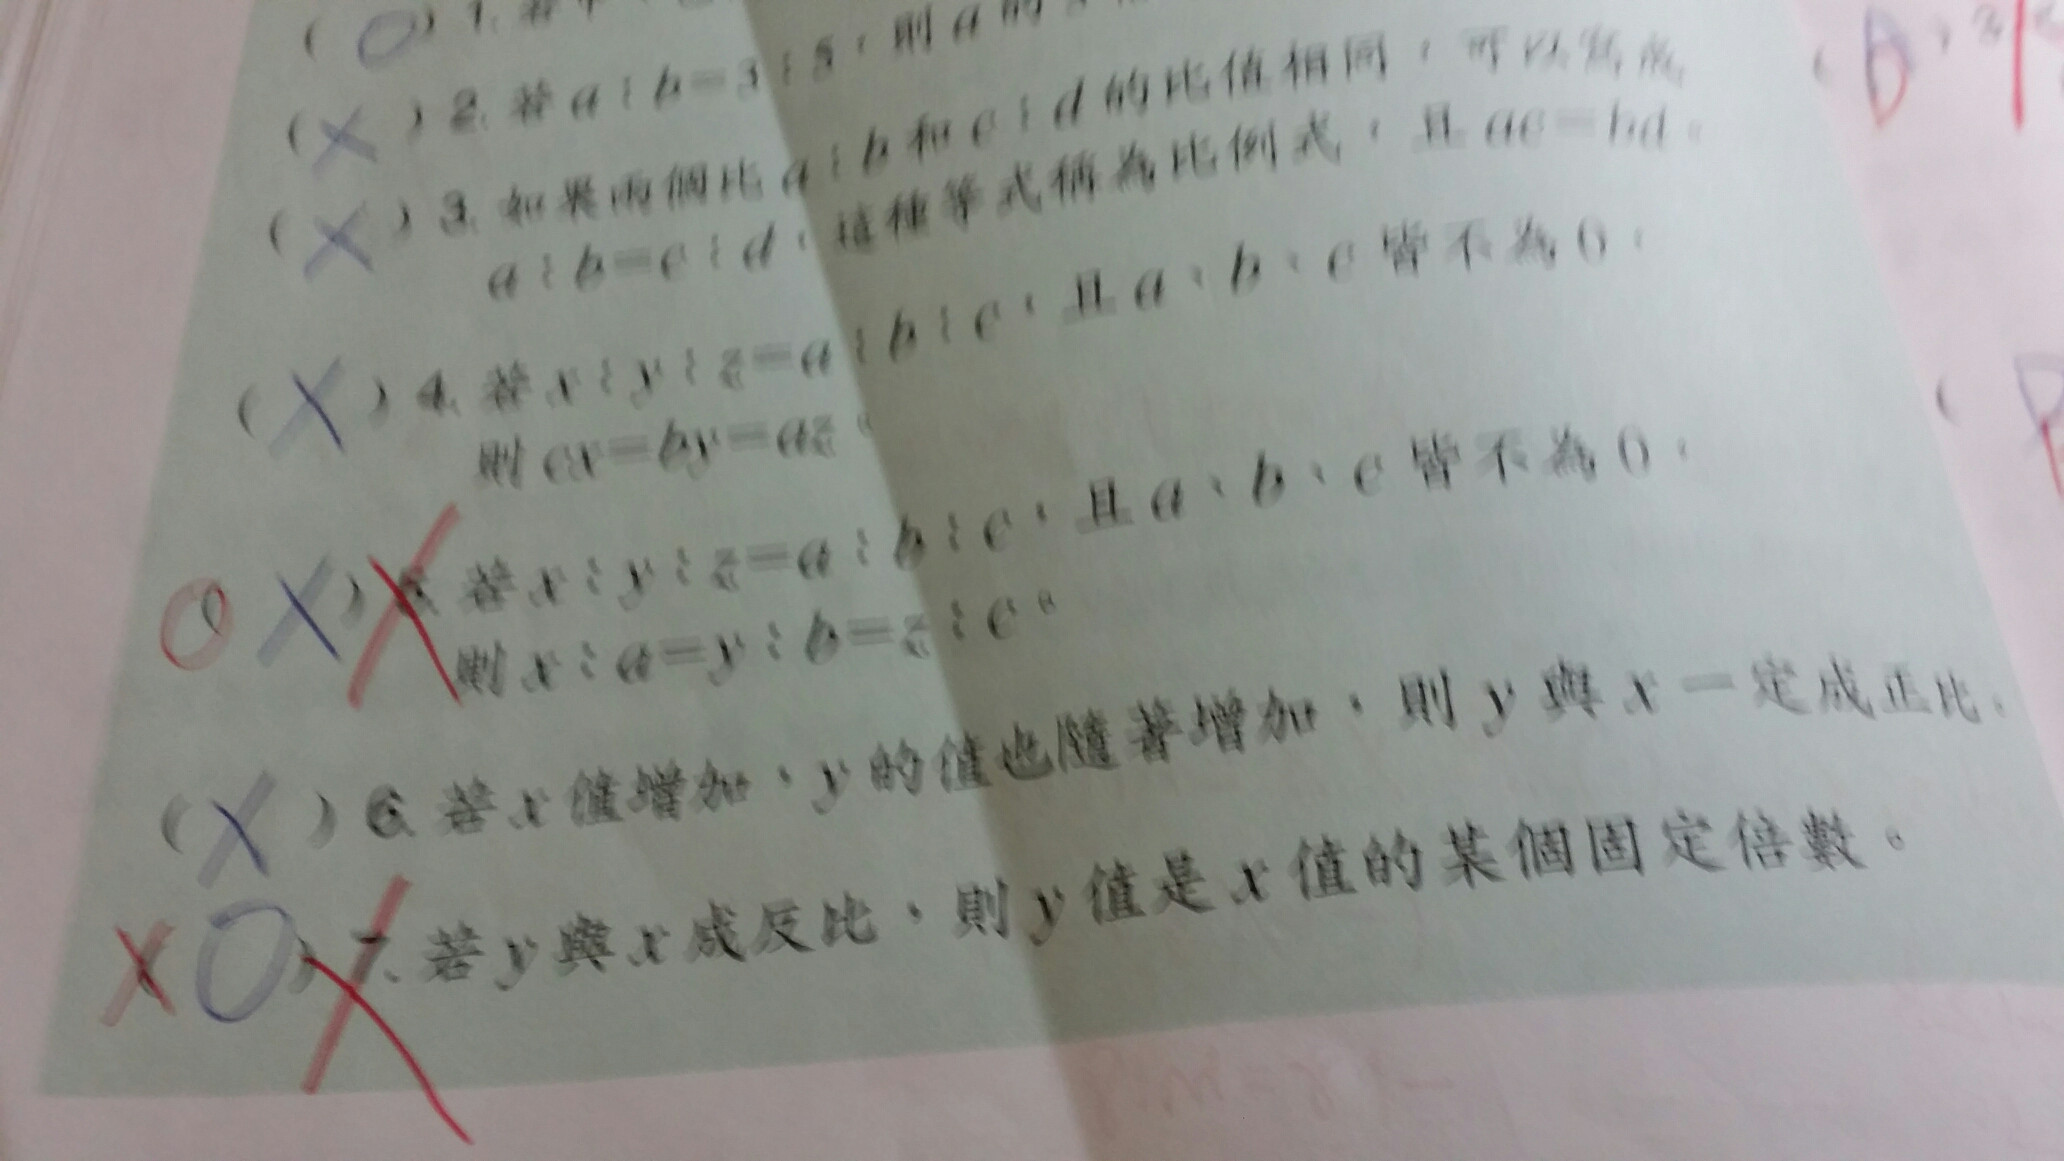 (O) 1. 若
(X) 2. 若 a：b＝3：5，則 a 的
(X) 3. 如果兩個比 a：b 和 c：d 的比值相同，可以寫成
a：b＝c：d，這種等式稱為比例式，且 ac＝bd。
(X) 4. 若 x：y：z＝a：b：c，且 a、b、c 皆不為 0，
則 cx＝by＝az。
O (X) X 5. 若 x：y：z＝a：b：c，且 a、b、c 皆不為 0，
則 x：a＝y：b＝z：c。
(X) 6. 若 x 值增加，y 的值也隨著增加，則 y 與 x 一定成正比。
X (O) X 7. 若 y 與 x 成反比，則 y 值是 x 值的某個固定倍數。